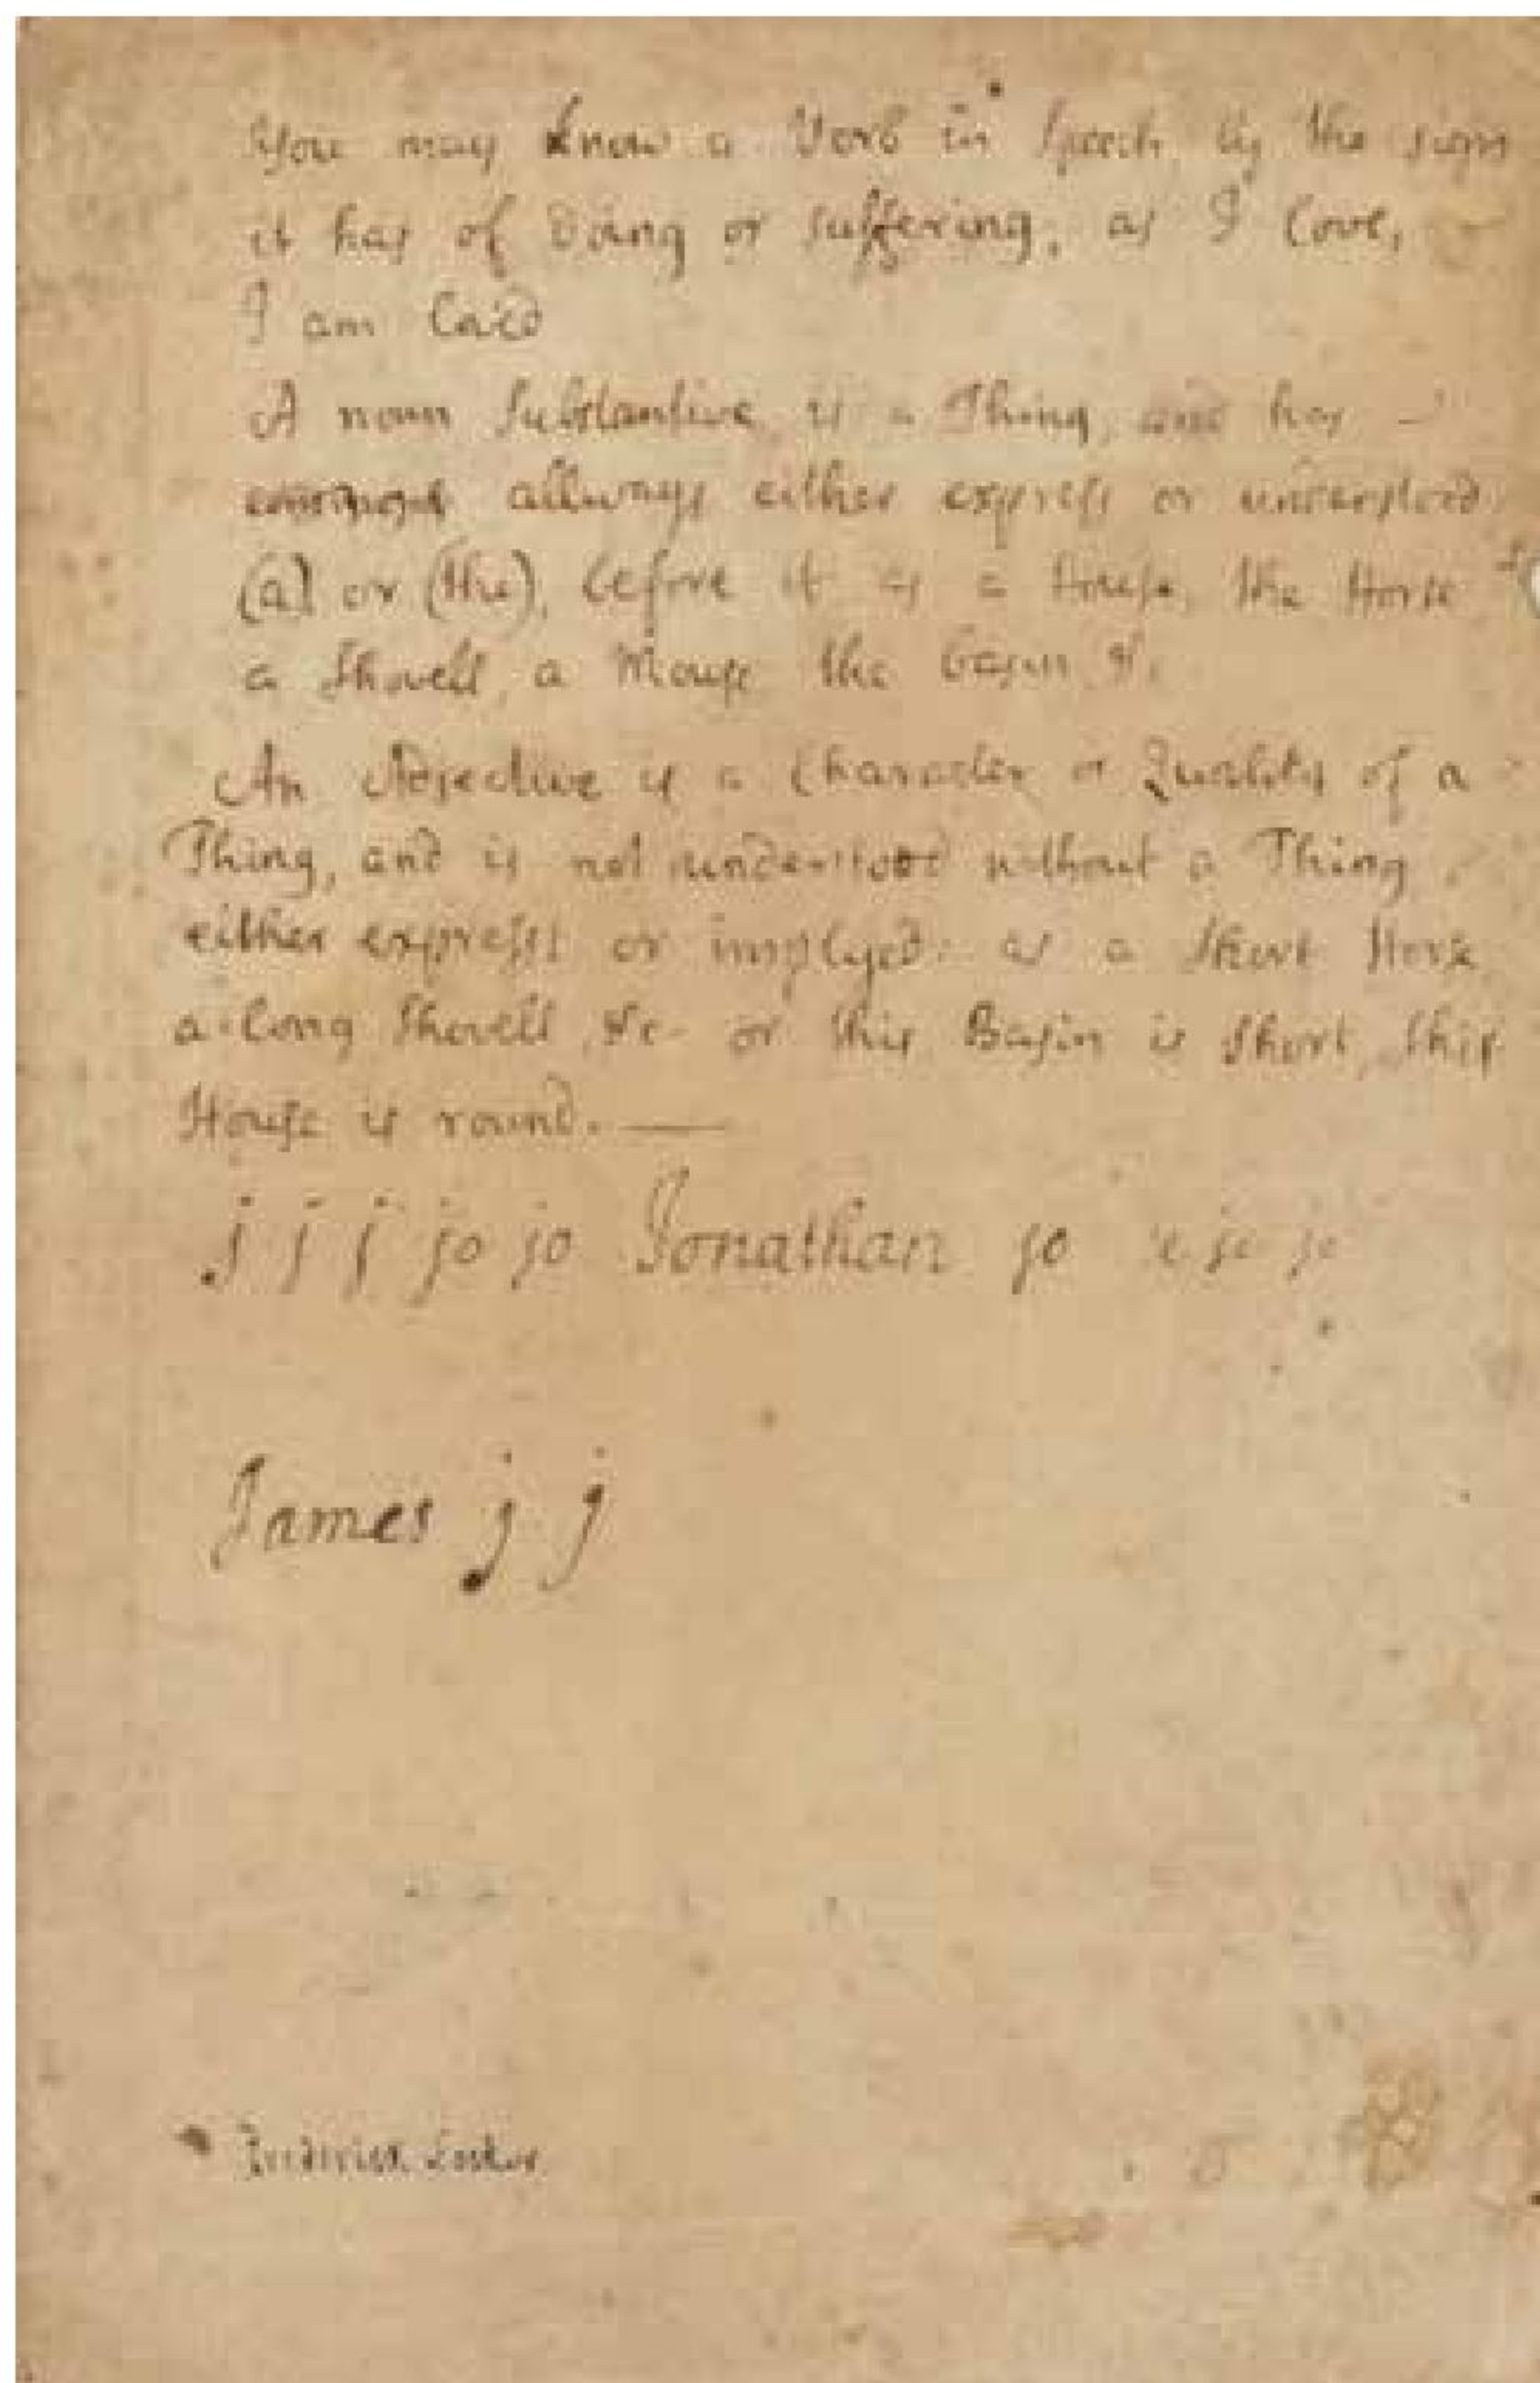 You may know a Verb in Speech by the sign
it has of Doing or suffering, as I love,
I am lov'd
A noun Substantive is a Thing, and has
allways either express or understood
(a) or (the), before it as a House, the Horse
a Shovell, a Mouse the basin &c.
An Adjective is a Character or Quality of a
Thing, and is not understood without a Thing
either expresst or implyed: as a Short Horse
a long Shovell, &c or this Basin is Short, this
House is round.
j j j jo jo Jonathan jo je je
James j j
Frederick Locker